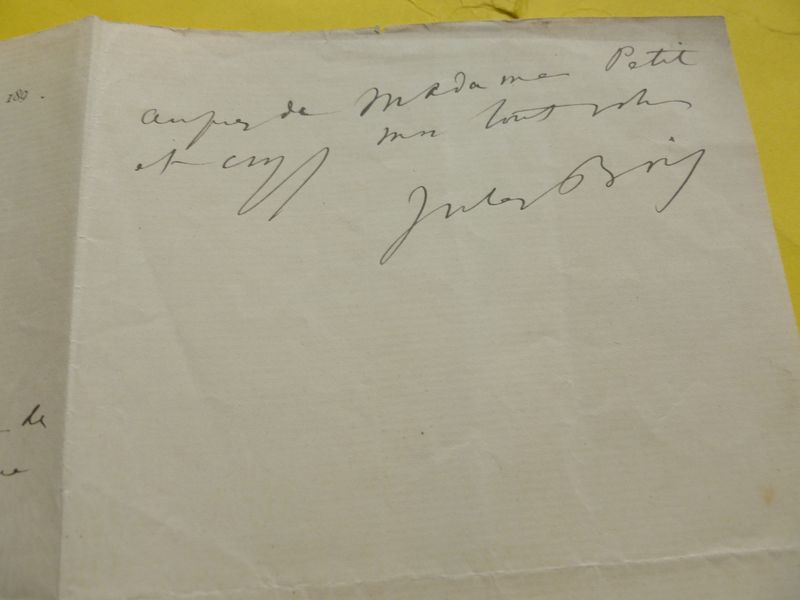 189 .
auprès de Madame Petit
et croyez moi tout vôtre
Jules Bois
de